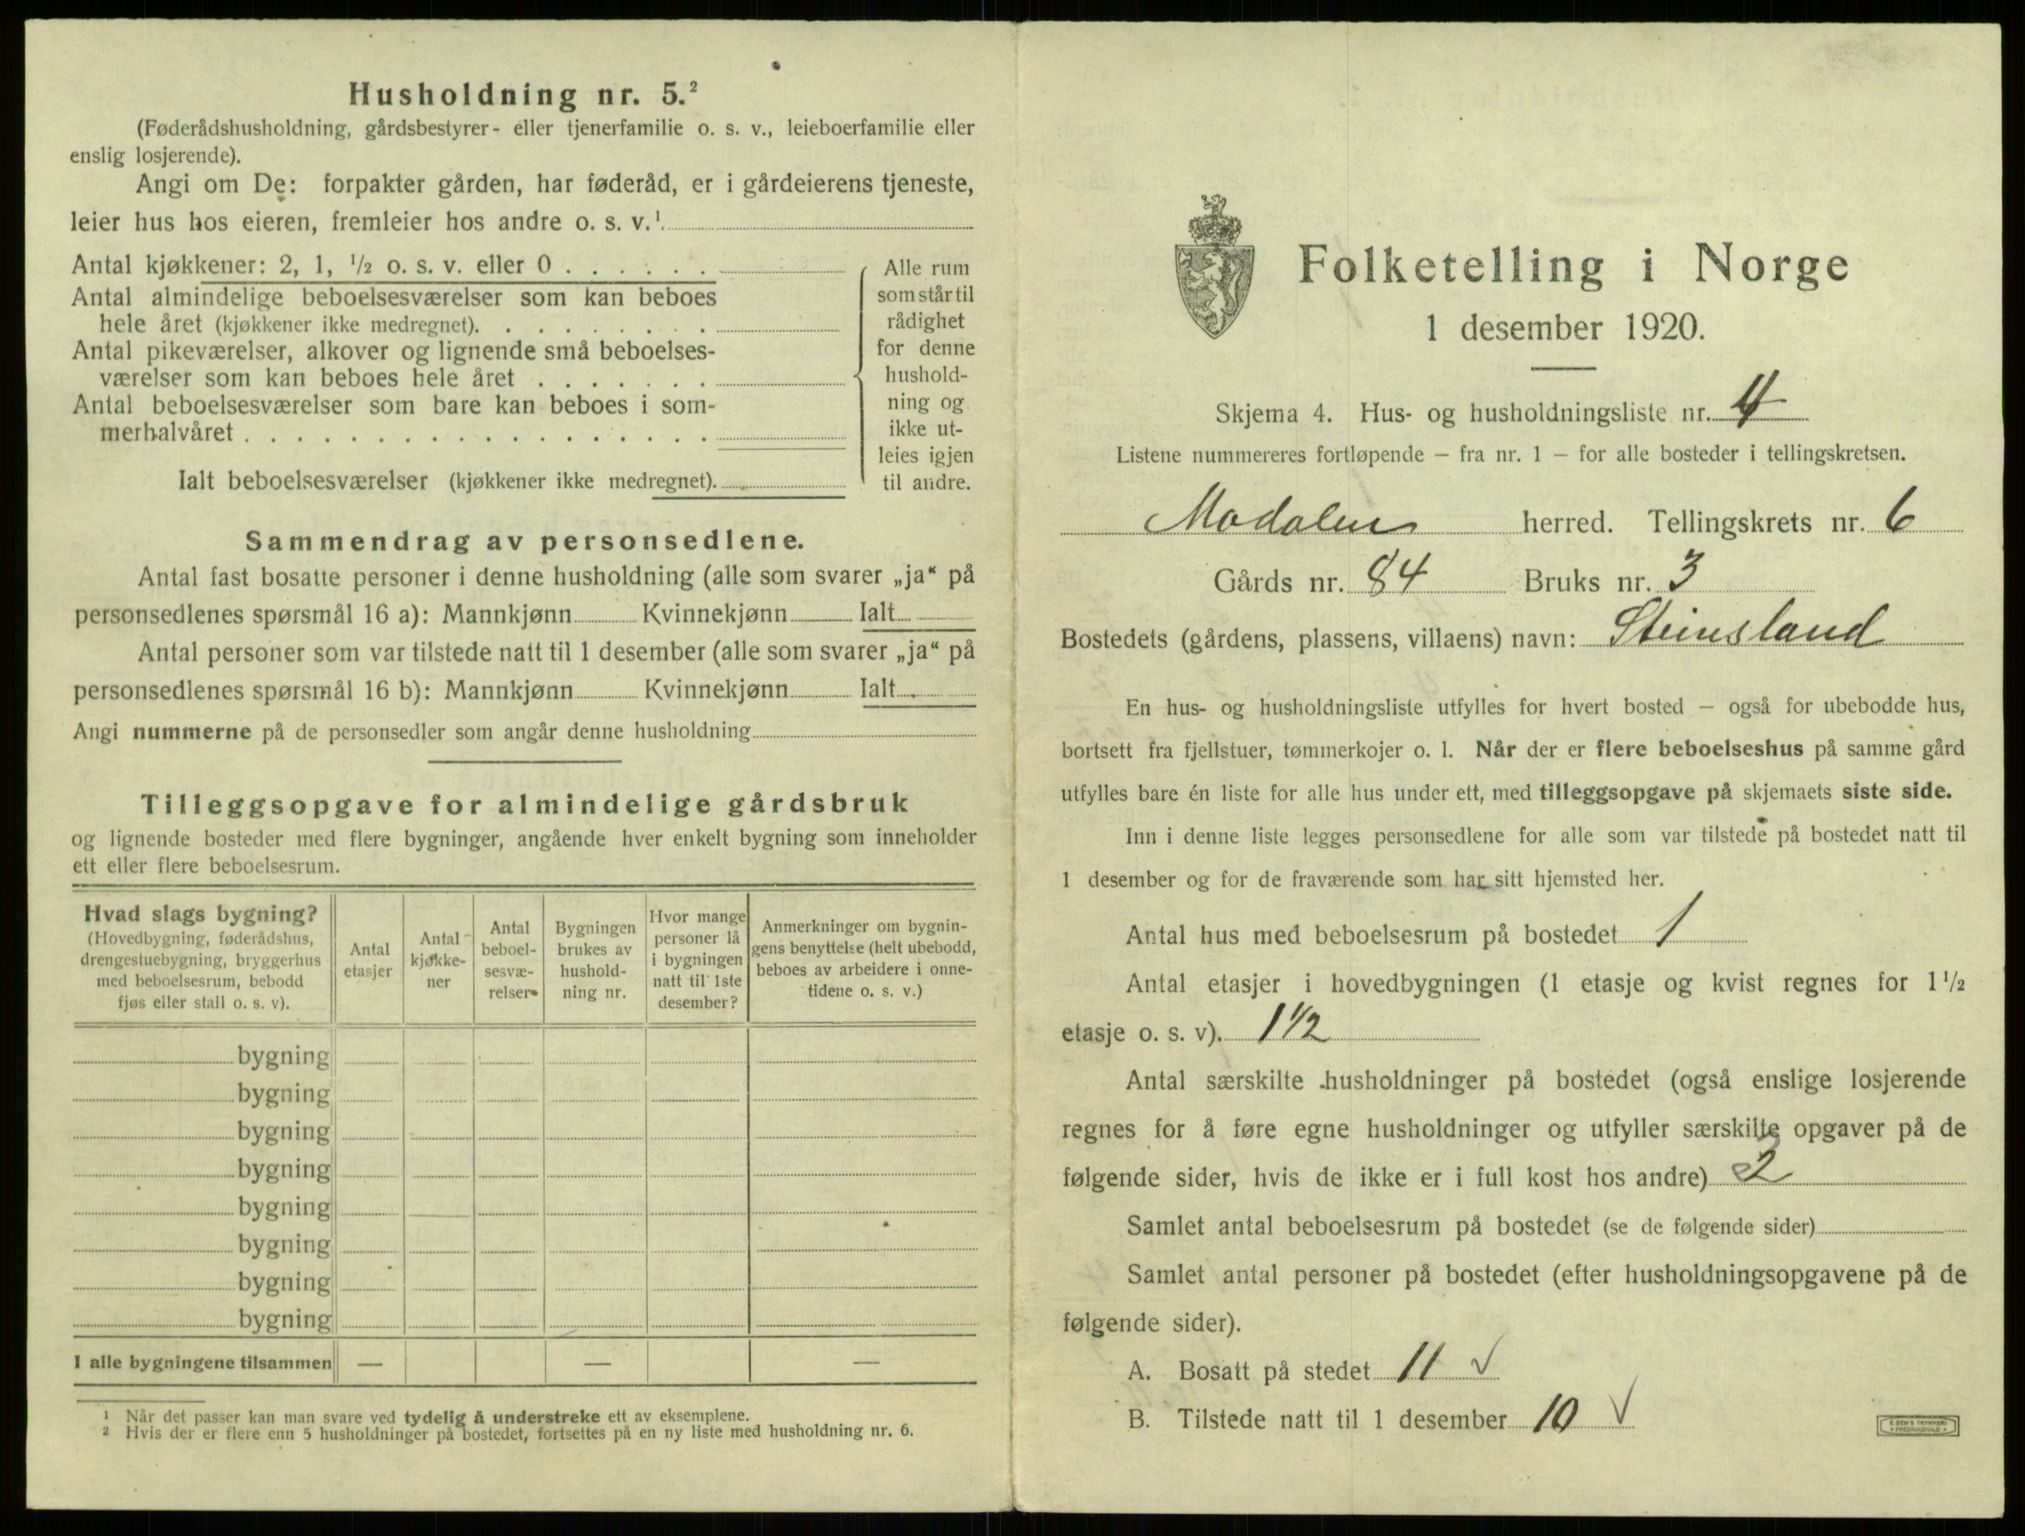 Husholdning nr. 5.²
(Føderådshusholdning, gårdsbestyrer- eller tjenerfamilie o. s. v., leieboerfamilie eller
enslig losjerende).
Angi om De: forpakter gården, har føderåd, er i gårdeierens tjeneste,
leier hus hos eieren, fremleier hos andre o. s. v.¹
Antal kjøkkener: 2, 1, ½ o. s. v. eller 0 . . . . . .
Antal almindelige beboelsesværelser som kan beboes
hele året (kjøkkener ikke medregnet). . . . . . . . .
Antal pikeværelser, alkover og lignende små beboelses-
værelser som kan beboes hele året . . . . . . .
Antal beboelsesværelser som bare kan beboes i som-
merhalvåret . . . . . . . . . . . . . . . . . .
Ialt beboelsesværelser (kjøkkener ikke medregnet).
Alle rum
som står til
rådighet
for denne
hushold-
ning og
ikke ut-
leies igjen
til andre.
Sammendrag av personsedlene.
Antal fast bosatte personer i denne husholdning (alle som svarer „ja“ på
personsedlenes spørsmål 16 a): Mannkjønn Kvinnekjønn Ialt
Antal personer som var tilstede natt til 1 desember (alle som svarer „ja“ på
personsedlenes spørsmål 16 b): Mannkjønn Kvinnekjønn Ialt
Angi nummerne på de personsedler som angår denne husholdning
Tilleggsopgave for almindelige gårdsbruk
og lignende bosteder med flere bygninger, angående hver enkelt bygning som inneholder
ett eller flere beboelsesrum.
Hvad slags bygning?
(Hovedbygning, føderådshus,
drengestuebygning, bryggerhus
med beboelsesrum, bebodd
fjøs eller stall o. s. v).
Antal
etasjer
Antal
kjøkke-
ner
Antal
beboel-
sesvæ-
relser
Bygningen
brukes av
hushold-
ning nr.
Hvor mange
personer lå
i bygningen
natt til 1ste
desember?
Anmerkninger om bygnin-
gens benyttelse (helt ubebodd,
beboes av arbeidere i onne-
tidene o. s. v.)
bygning
bygning
bygning
bygning
bygning
bygning
bygning
bygning
I alle bygningene tilsammen — — —
¹ Når det passer kan man svare ved tydelig å understreke ett av eksemplene.
² Hvis der er flere enn 5 husholdninger på bostedet, fortsettes på en ny liste med husholdning nr. 6.
Folketelling i Norge
1 desember 1920.
Skjema 4. Hus- og husholdningsliste nr. 4
Listene nummereres fortløpende – fra nr. 1 – for alle bosteder i tellingskretsen.
Modalen herred. Tellingskrets nr. 6
Gårds nr. 84 Bruks nr. 3
Bostedets (gårdens, plassens, villaens) navn: Steinsland
En hus- og husholdningsliste utfylles for hvert bosted – også for ubebodde hus,
bortsett fra fjellstuer, tømmerkojer o. l. Når der er flere beboelseshus på samme gård
utfylles bare én liste for alle hus under ett, med tilleggsopgave på skjemaets siste side.
Inn i denne liste legges personsedlene for alle som var tilstede på bostedet natt til
1 desember og for de fraværende som har sitt hjemsted her.
Antal hus med beboelsesrum på bostedet 1
Antal etasjer i hovedbygningen (1 etasje og kvist regnes for 1½
etasje o. s. v). 1½
Antal særskilte husholdninger på bostedet (også enslige losjerende
regnes for å føre egne husholdninger og utfyller særskilte opgaver på de
følgende sider, hvis de ikke er i full kost hos andre) 2
Samlet antal beboelsesrum på bostedet (se de følgende sider)
Samlet antal personer på bostedet (efter husholdningsopgavene på de
følgende sider).
A. Bosatt på stedet 11 ✓
B. Tilstede natt til 1 desember 10 ✓